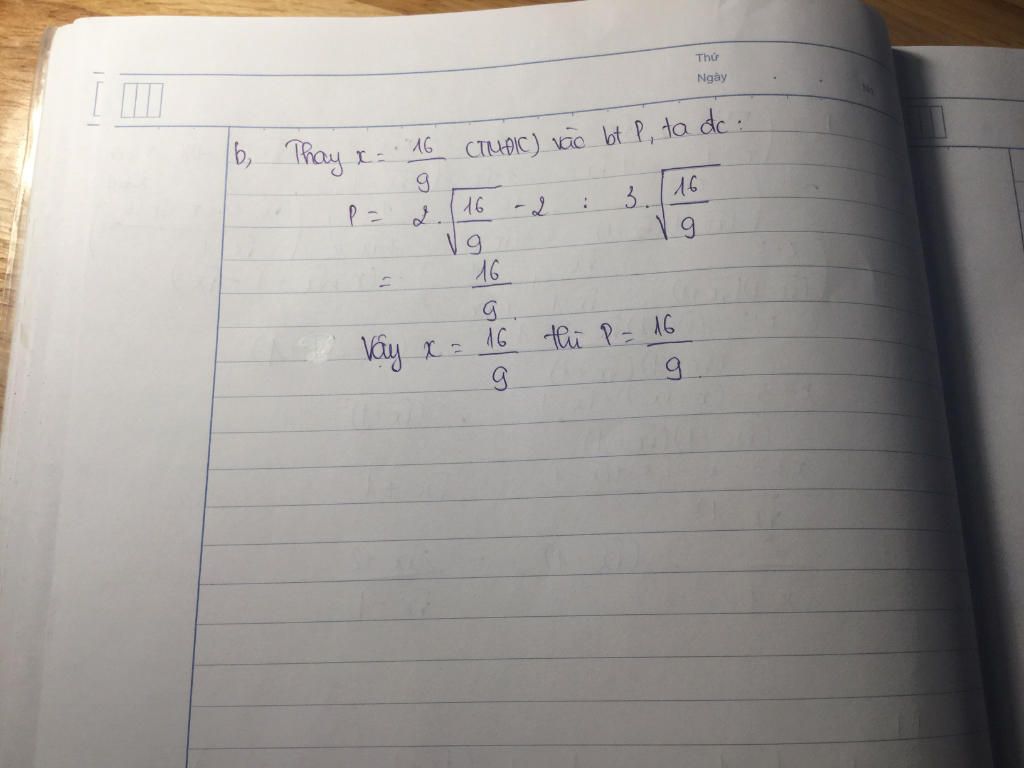 Thứ
Ngày
No
b, Thay x = 16/9 (TMĐK) vào bt P, ta đc :
P = 2.√(16/9) - 2 : 3.√(16/9)
= 16/9.
Vậy x = 16/9 thì P = 16/9.